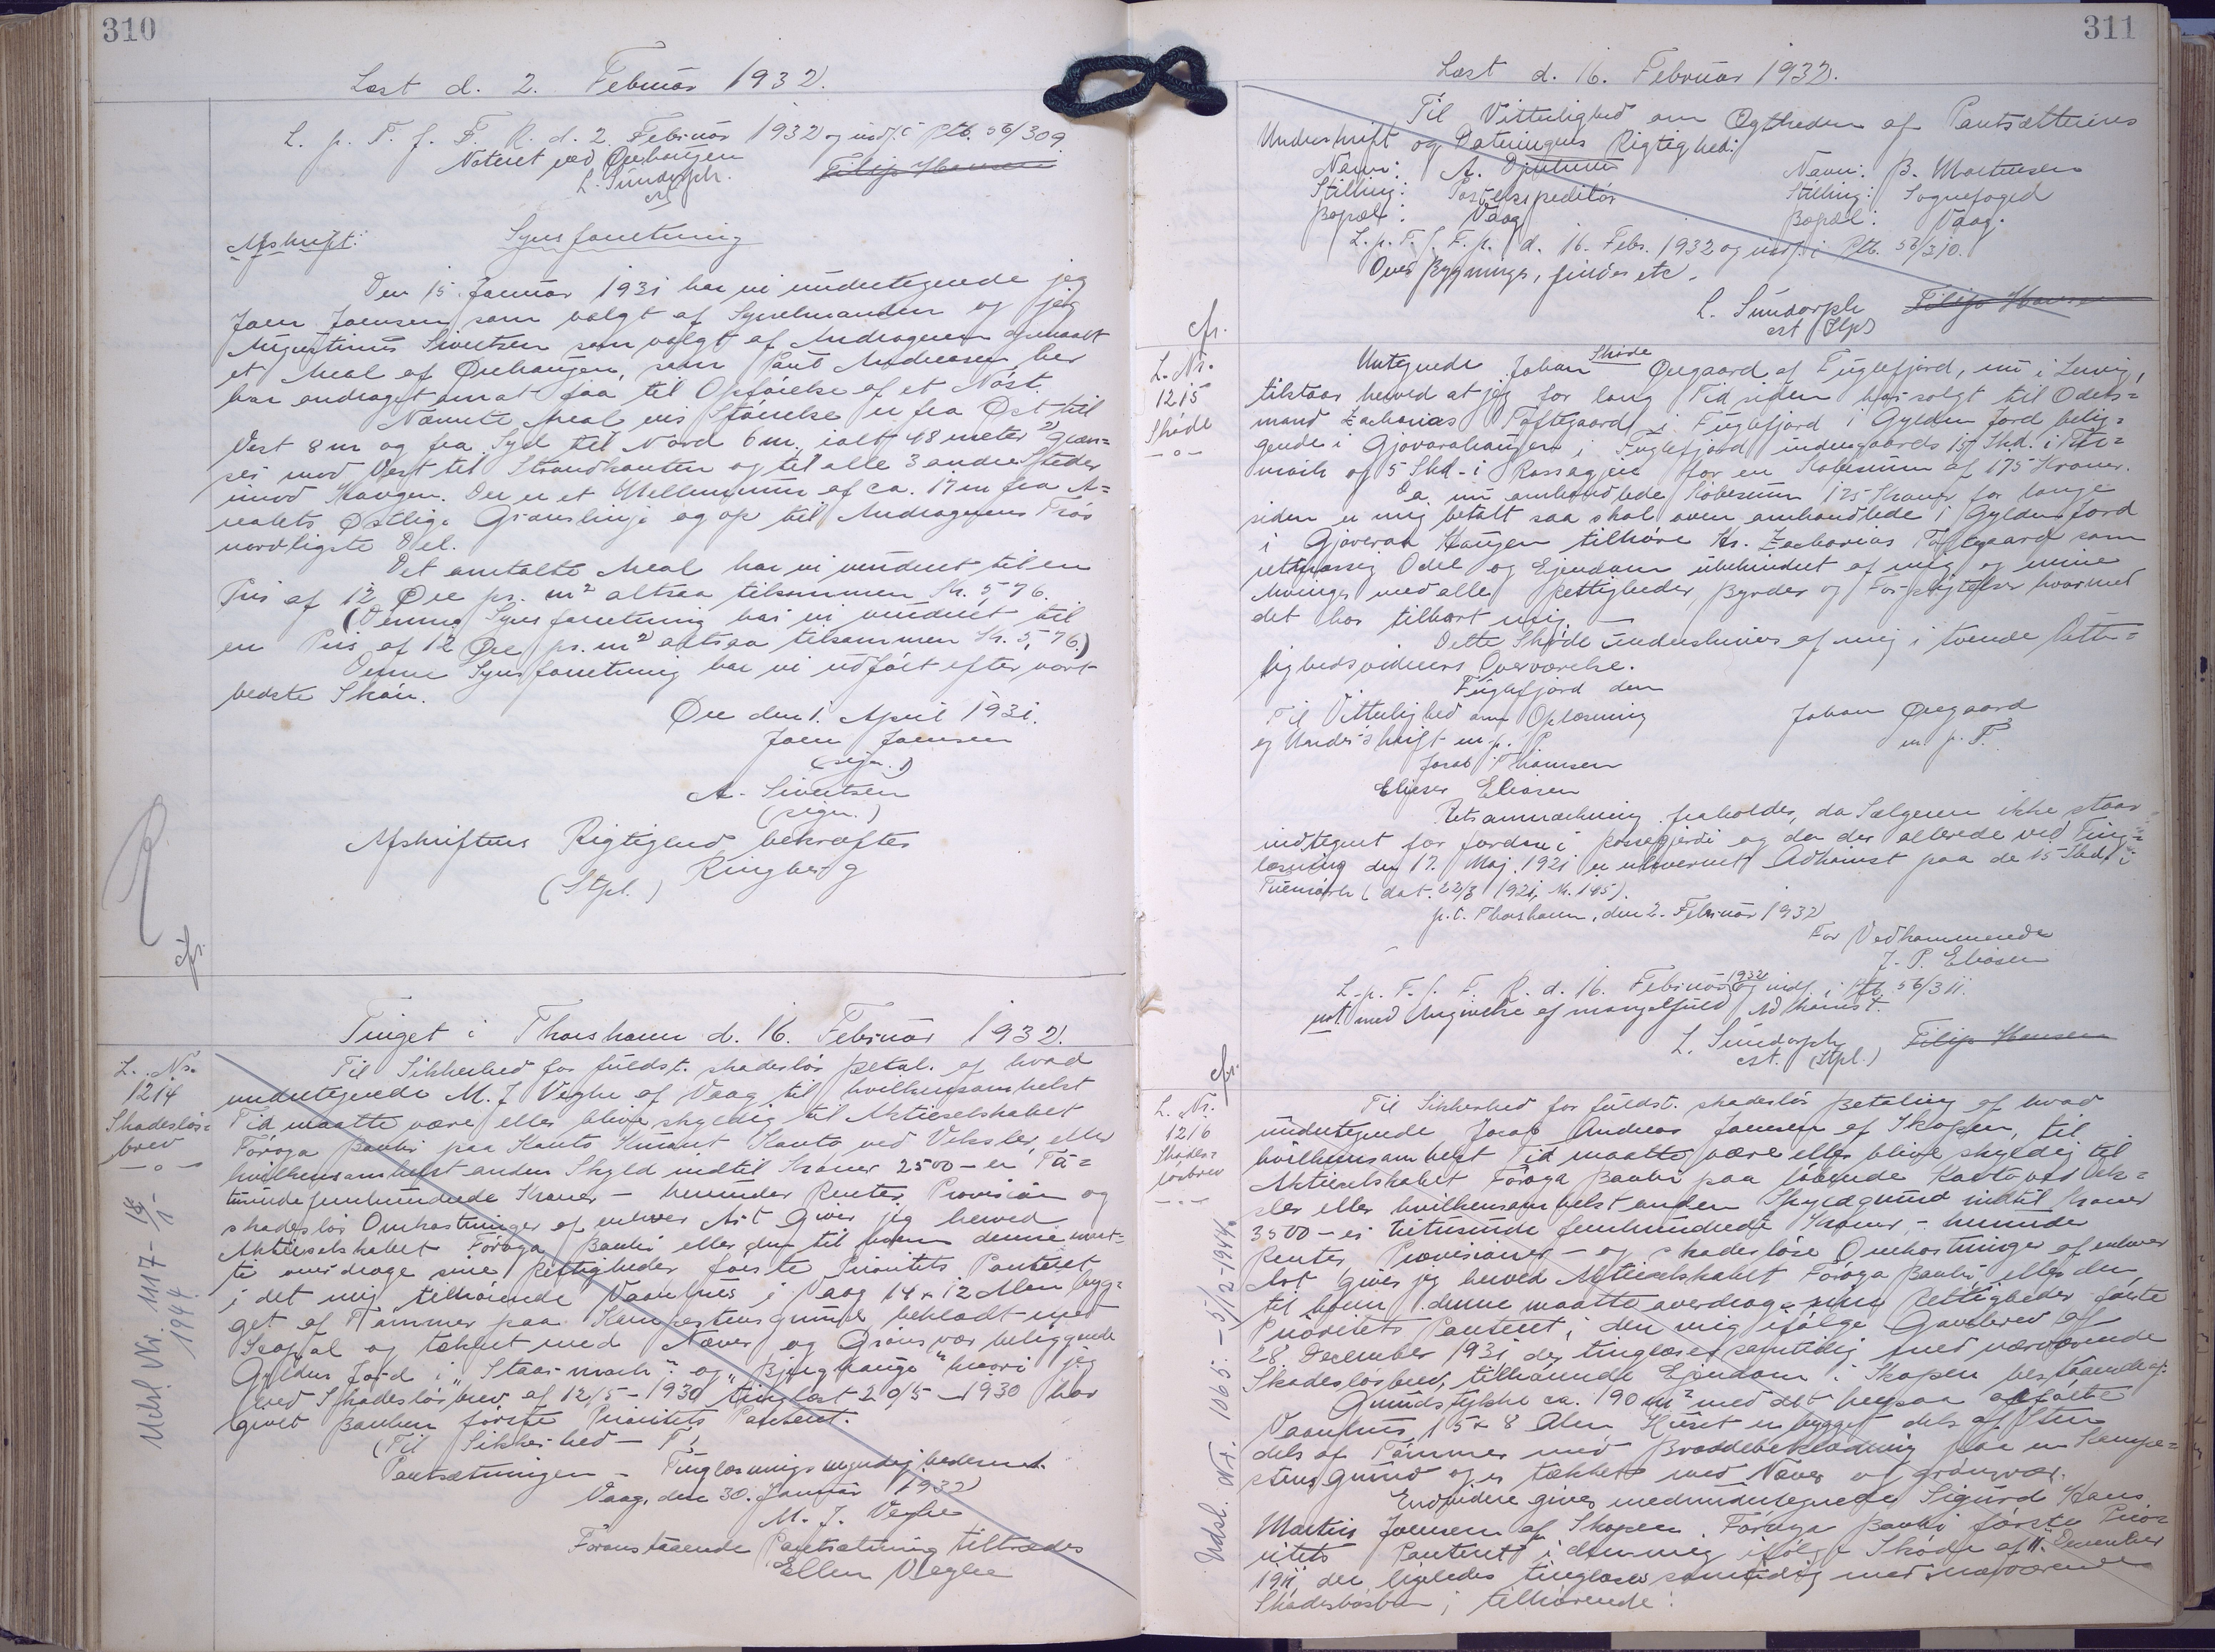 310
Læst d. 2. Februar 1932.
L. p. T. f. F. R. d. 2. Februar 1932 og indf. i Ptb. 56/309.
Noteret ved Ørehaugen
L. Sundorph.
cst
Filip Hansen
Afskrift:
Synsforretning
Den 15. Januar 1931 har vi undertegnede jeg
Joen Joensen som valgt af Sysselmanden og jeg
Augustinus Sivertsen som valgt af Andrageren opmaalt
et Areal af Ørehaugen, som Poul Andreasen her
har andraget om at faa til Opførelse af et Nøst.
Nævnte Areal vis Størrelse er fra Øst til
Vest 8 m og fra Syd til Nord 6 m, ialt 48 meter 2) græn=
ser mod Vest til Strandkanten og til alle 3 andre Steder
imod Haugen. Der er et Mellemrum af ca. 17 m fra A=
realets østlige Grænslinje og op til Andragerens Trøs
nordligste Del.
Det omtalte Areal har vi vurderet til en
Pris af 12 Øre pr. m2 altsaa tilsammen Kr. 5,76.
(Denne Synsforretning har vi vurderet til
en Pris af 12 Øre pr. m2 altsaa tilsammen Kr. 5,76)
Denne Synsforretning har vi udført efter vort
bedste Skøn.
Øre den 1. April 1931.
Joen Joensen
(sign.)
A. Sivertsen
(sign.)
Afskriftens Rigtighed bekræftes
Ringberg
(Stpl.)
R
cfr.
Tinget i Thorshavn d. 16. Februar 1932.
L. Nr.
1214
Skadesløs=
brev
—o—
Udsl Nr. 1117 -
1944
Til Sikkerhed for fuldst. skadesløs Betal. af hvad
undertegnede M. J Veghe af Vaag til hvilkensomhelst
Tid maatte være eller blive skyldig til Aktieselskabet
Føroya Banki paa Konto Kurant Konto ved Veksler eller
hvilkensomhelst anden Skyld indtil Kroner 2500 - er To=
tusindefemhundrede Kroner - herunder Renter, Provision og
skadesløs Omkostninger af enhver Art Giver jeg herved
Aktieselskabet Føroya Banki eller den til hvem denne maat=
te overdrage sine Rettigheder første Prioritets Panteret
i det mig tilhørende Vaanhus i Vaag 14 x 12 Alen byg=
get af Tømmer paa Kampestensgrund, beklædt med
Scopal og tækket med Næver og Grønsvær beliggende
Gylden Jord i "Staarmark" og "Bjerghauge" hvori jeg
ved Skadesløsbrev af 12/5 - 1930 tinglæst 20/5 - 1930 har
givet Banken første Prioritets Panteret.
(Til Sikkerhed - T)
Pantsætningen - Tinglæsningsmyndighederne.
Vaag, den 30. Januar 1932
M. J. Veghe
Foranstaaende Pantsætning tiltrædes
Ellen Veghe
311
Læst d. 16. Februar 1932.
Til Vitterlighed om Ægtheden af Pantsætterens
Underskrift og Dateringens Rigtighed:
Navn: A.
Navn: B. Mortensen
Stilling: Postekspeditør
Stilling: Sognefoged
Bopæl: Vaag
Bopæl: Vaag.
L. p. T. f. F. R. d. 16. Febr. 1932 og indf. i Ptb. 56/310.
Over Bygninger, Jorder etc.
L. Sundorph
cst (Stpl)
Filip Hansen
cfr.
L. Nr.
1215
Skøde
—o—
Skøde
Untegnede Johan Øregaard af Fuglefjord, nu i Lervig,
tilstaar herved at jeg for lang Tid siden har solgt til Odels=
mand Zacharias Toftegaard i Fuglefjord 1 Gylden Jord belig=
gende i Gjovarahaugen i Fuglefjord undergaards 15 Skd. i
mark og 5 Skd - i for en Købesum af 175 Kroner.
Da nu omhandlede Købesum 175 Kroner for lange
siden er mig betalt saa skal oven omhandlede 1 Gylden Jord
i Gjoveraa Haugen tilhøre Hr. Zacharias Toftegaard som
retmæssig Odel og Ejendom ubehindret af mig og mine
Arvinger med alle Rettigheder, Byrder og Forpligtelser hvormed
det har tilhørt mig. —
Dette Skøde underskrives af mig i tvende Vitter=
lighedsvidners Overværelse.
Fuglefjord den
Til Vitterlighed om Oplæsning
og Underskrift m. p. P
Johan Øregaard
m. p. P.
Jacob Thomsen
Eljeser Eliasen
Retsanmærkning fraholdes, da Sælgeren ikke staar
indtegnet for Jorden i og da der allerede ved Ting=
læsning den 17. Maj 1921 er erhvervet Adkomst paa de 15 Skd. i
(dat. 22/3 1921, Nr. 145).
p. t. Thorshavn, den 2. Februar 1932
For Vedkommende
J. P. Eliasen
L. p. T. f. F. R. d. 16. Februar 1932 og indf. i Ptb. 56/311.
not. med Angivelse af mangelfuld Adkomst.
L. Sundorph
cst. (Stpl.)
Filip Hansen
cfr.
L. Nr.
1216
Skades=
løsbrev
—"—
Udsl. Nr. 1065. - 5/12-1944.
Til Sikkerhed for fuldst. skadesløs Betaling af hvad
undertegnede Jacob Andreas Joensen af Skopen, til
hvilkensomhelst Tid maatte være eller blive skyldig til
Aktieselskabet Føroya Banki paa løbende Konto ved Vek=
sler eller hvilkensomhelst anden Skyldgrund indtil Kroner
3500 - er tretusinde femhundrede Kroner - herunder
Renter Provisioner - og skadesløse Omkostninger af enhver
Art giver jeg herved Aktieselskabet Føroya Banki eller den
til hvem denne maatte overdrage sine Rettigheder første
Prioritets Panteret i den mig ifølge Gavebrev af
28. December 1931 der tinglæses samtidig med nærværende
Skadesløsbrev, tilhørende Ejendom i Skopen bestaaende af:
Grundstykke ca. 190 m2 med det herpaa opførte
Vaanhus, 15 x 8 Alen, Huset er bygget dels af Sten
dels af Tømmer med Bræddebeklædning paa en Kampe=
stens grund og er tækket med Næver og grønsvær.
Endvidere giver medundertegnede Sigurd Hans
Martin Joensen af Skopen Føroya Banki første Prio=
ritets Panteret i den mig ifølge Skøde af 11. December
1911, der ligeledes tinglæses samtidig med nærværende
Skadesløsbrev, tilhørende: